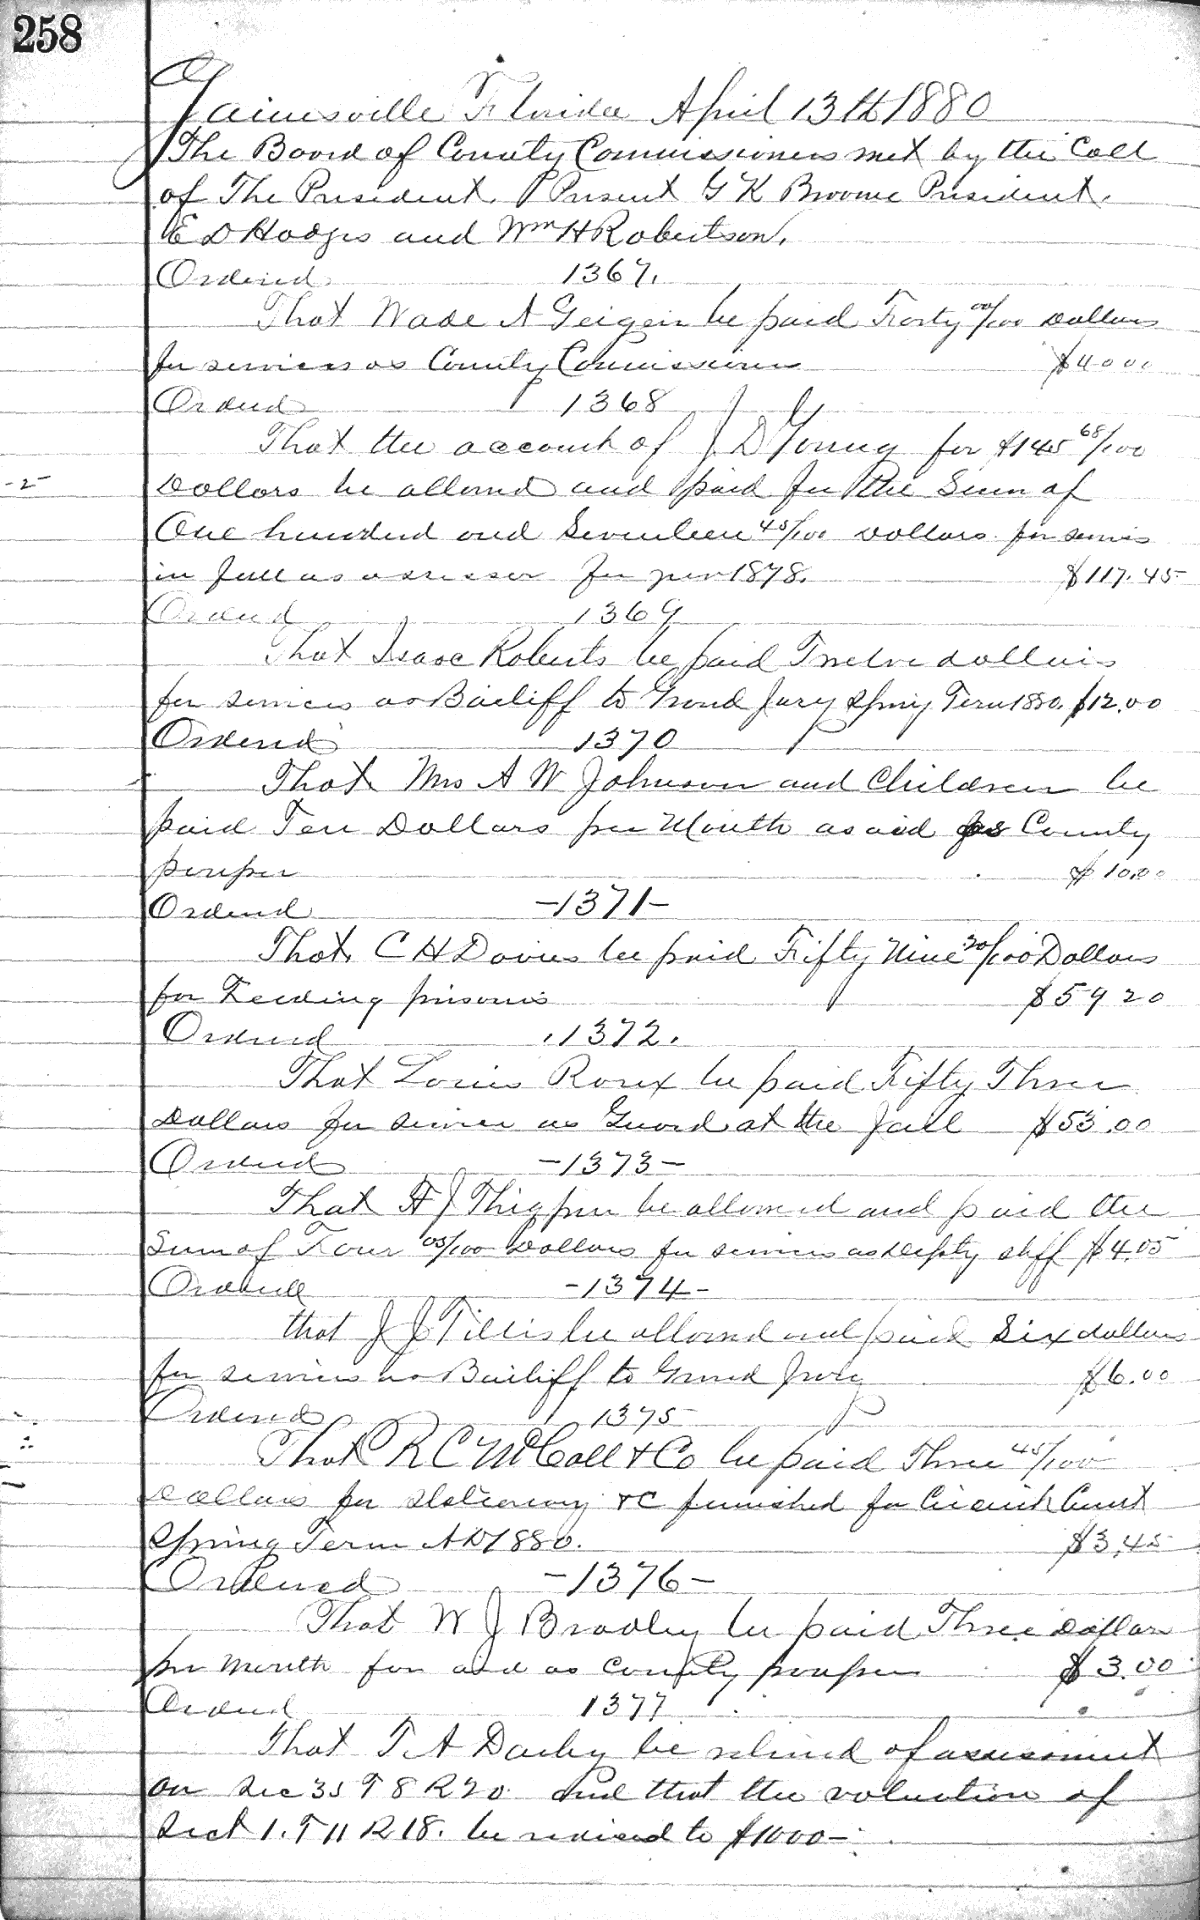 258
Gainesville Florida April 13th 1880
The Board of County Commissioners met by the Call
of The President. Present G K Broome President.
E D Hodges and Wm H Robertson.
Ordered 1367.
That Wade A Geiger be paid Forty 00/100 Dollars
for services as County Commissioner $40 00
Ordered 1368
That the account of J D Young for $145 68/100
Dollars be allowed and paid for the Sum of
One hundred and Seventeen 45/100 Dollars for services
in full as assessor for year 1878. $117.45
Ordered 1369
That Isaac Roberts be paid Twelve dollars
for services as Bailiff to Grand Jury Spring Term 1880. $12.00
Ordered 1370
That Mrs A W Johnson and Children be
paid Ten Dollars per Month as aid as County
pauper $10.00
Ordered -1371-
That C H Davies be paid Fifty Nine 20/100 Dollars
for Feeding prisoners $59 20
Ordered .1372.
That Louis Roux be paid Fifty Three
Dollars for service as Guard at the Jail $53.00
Ordered -1373-
That A J Thigpen be allowed and paid the
Sum of Four 05/100 Dollars for services as Depty shff $4.05
Ordered -1374-
that J J Tillis be allowed and paid Six dollars
for services as Bailiff to Grand Jury $6.00
Ordered 1375
That R C McCall & Co be paid Three 45/100
Dollars for stationery &C furnished for Circuit Court
Spring Term AD 1880. $3.45
Ordered -1376-
That W J Bradley be paid Three Dollars
per month for aid as County pauper $3.00
Ordered 1377
That T A Darby be relieved of assessment
on Sec 35 T 8 R 20 and that the valuation of
Sect 1. T 11 R 18. be reduced to $1000-